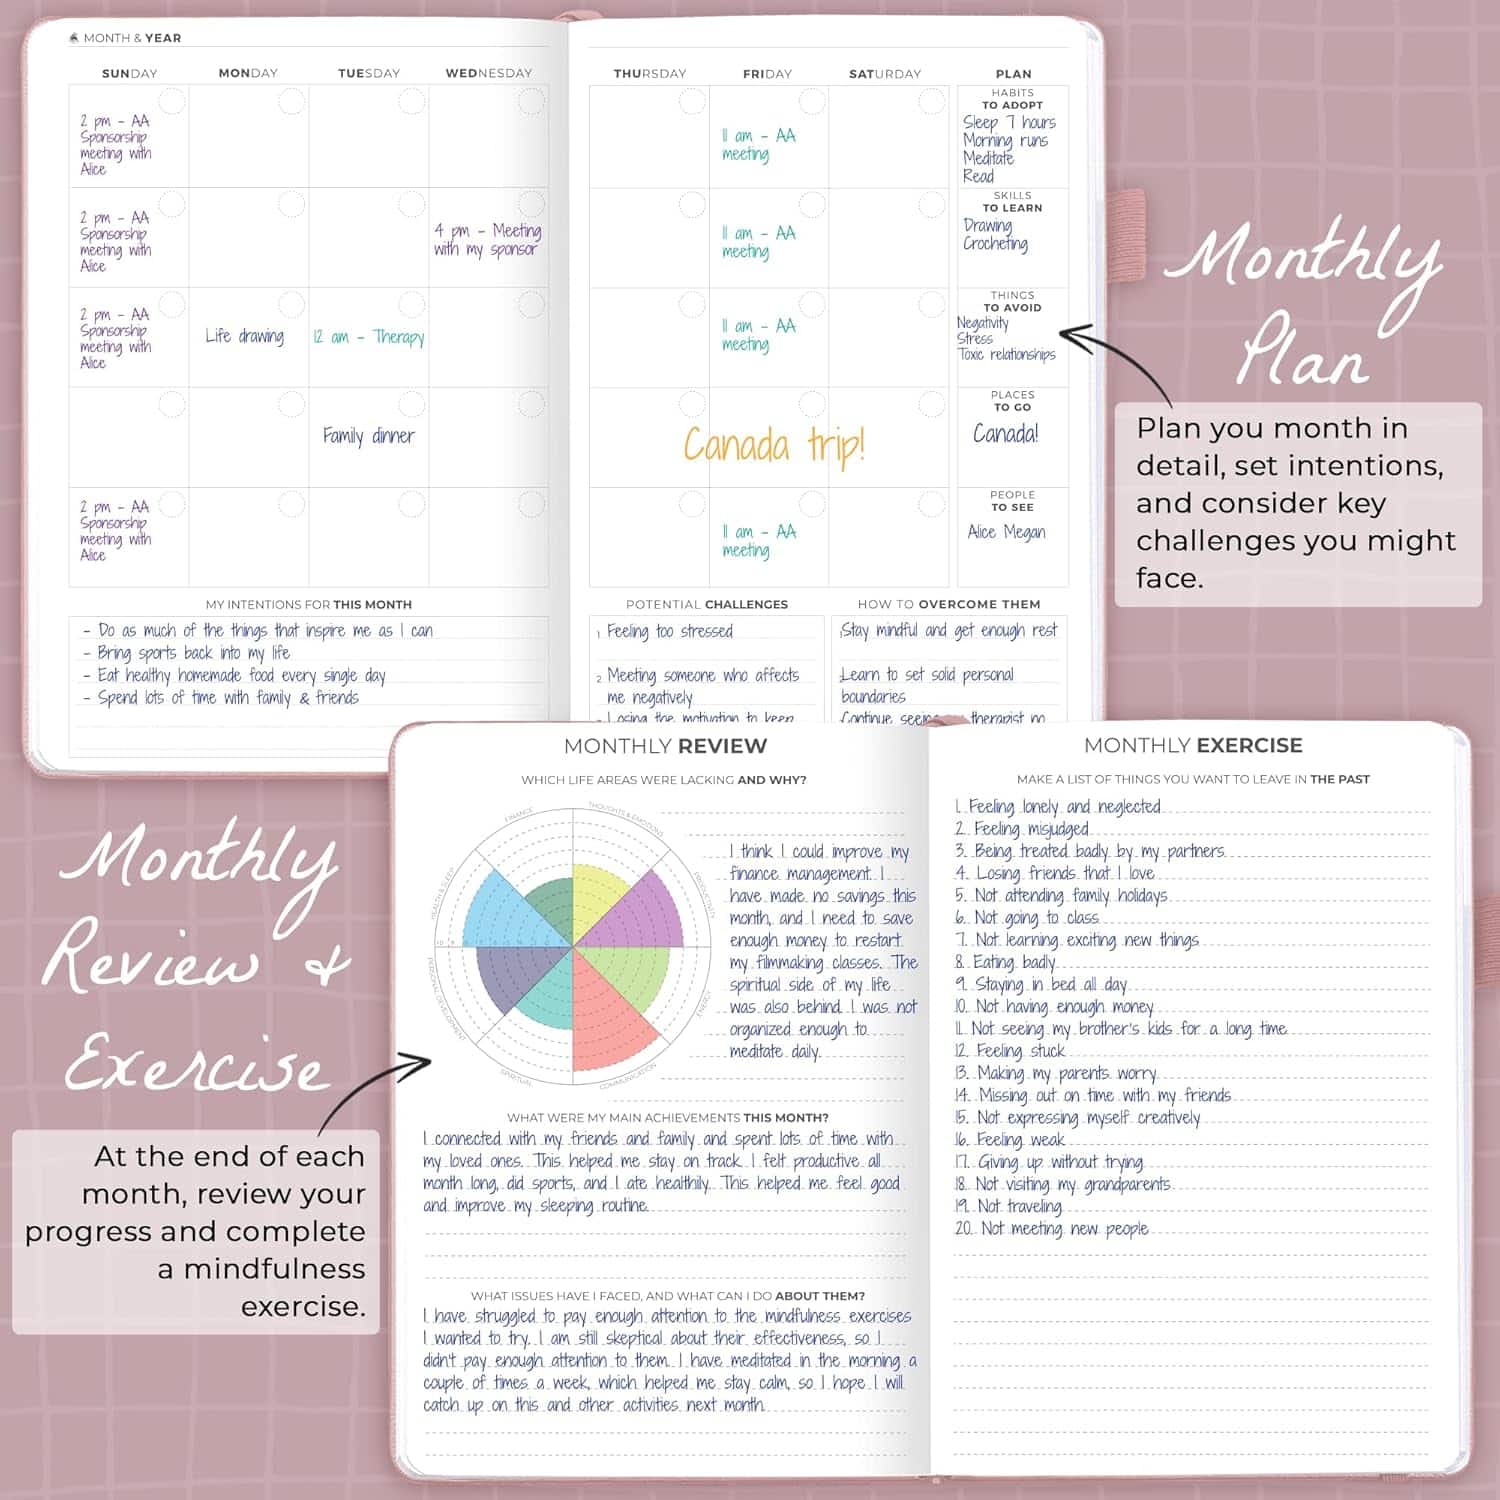 MONTH & YEAR
SUNDAY MONDAY TUESDAY WEDNESDAY THURSDAY FRIDAY SATURDAY PLAN
2 pm - AA
Sponsorship
meeting with
Alice
11 am - AA
meeting
HABITS
TO ADOPT
Sleep 7 hours
Morning runs
Meditate
Read
2 pm - AA
Sponsorship
meeting with
Alice
4 pm - Meeting
with my sponsor
11 am - AA
meeting
SKILLS
TO LEARN
Drawing
Crocheting
2 pm - AA
Sponsorship
meeting with
Alice
Life drawing
12 am - Therapy
11 am - AA
meeting
THINGS
TO AVOID
Negativity
Stress
Toxic relationships
Family dinner
Canada trip!
PLACES
TO GO
Canada!
2 pm - AA
Sponsorship
meeting with
Alice
11 am - AA
meeting
PEOPLE
TO SEE
Alice Megan
MY INTENTIONS FOR THIS MONTH
- Do as much of the things that inspire me as I can
- Bring sports back into my life
- Eat healthy homemade food every single day
- Spend lots of time with family & friends
POTENTIAL CHALLENGES
1 Feeling too stressed
2 Meeting someone who affects
me negatively
Losing the motivation to keep
HOW TO OVERCOME THEM
1 Stay mindful and get enough rest
2 Learn to set solid personal
boundaries
Continue seeing my therapist no
Monthly
Plan
Plan you month in
detail, set intentions,
and consider key
challenges you might
face.
Monthly
Review &
Exercise
At the end of each
month, review your
progress and complete
a mindfulness
exercise.
MONTHLY REVIEW
WHICH LIFE AREAS WERE LACKING AND WHY?
FINANCE
THOUGHTS & EMOTIONS
PRODUCTIVITY
ENERGY
COMMUNICATION
SPIRITUAL
PERSONAL DEVELOPMENT
HEALTH & SLEEP
I think I could improve my
finance management. I
have made no savings this
month, and I need to save
enough money to restart
my filmmaking classes. The
spiritual side of my life
was also behind. I was not
organized enough to
meditate daily.
WHAT WERE MY MAIN ACHIEVEMENTS THIS MONTH?
I connected with my friends and family and spent lots of time with
my loved ones. This helped me stay on track. I felt productive all
month long, did sports, and I ate healthily. This helped me feel good
and improve my sleeping routine.
WHAT ISSUES HAVE I FACED, AND WHAT CAN I DO ABOUT THEM?
I have struggled to pay enough attention to the mindfulness exercises
I wanted to try. I am still skeptical about their effectiveness, so I
didn't pay enough attention to them. I have meditated in the morning a
couple of times a week, which helped me stay calm, so I hope I will
catch up on this and other activities next month.
MONTHLY EXERCISE
MAKE A LIST OF THINGS YOU WANT TO LEAVE IN THE PAST
1. Feeling lonely and neglected
2. Feeling misjudged
3. Being treated badly by my partners
4. Losing friends that I love
5. Not attending family holidays
6. Not going to class
7. Not learning exciting new things
8. Eating badly
9. Staying in bed all day
10. Not having enough money
11. Not seeing my brother's kids for a long time
12. Feeling stuck
13. Making my parents worry
14. Missing out on time with my friends
15. Not expressing myself creatively
16. Feeling weak
17. Giving up without trying
18. Not visiting my grandparents
19. Not traveling
20. Not meeting new people